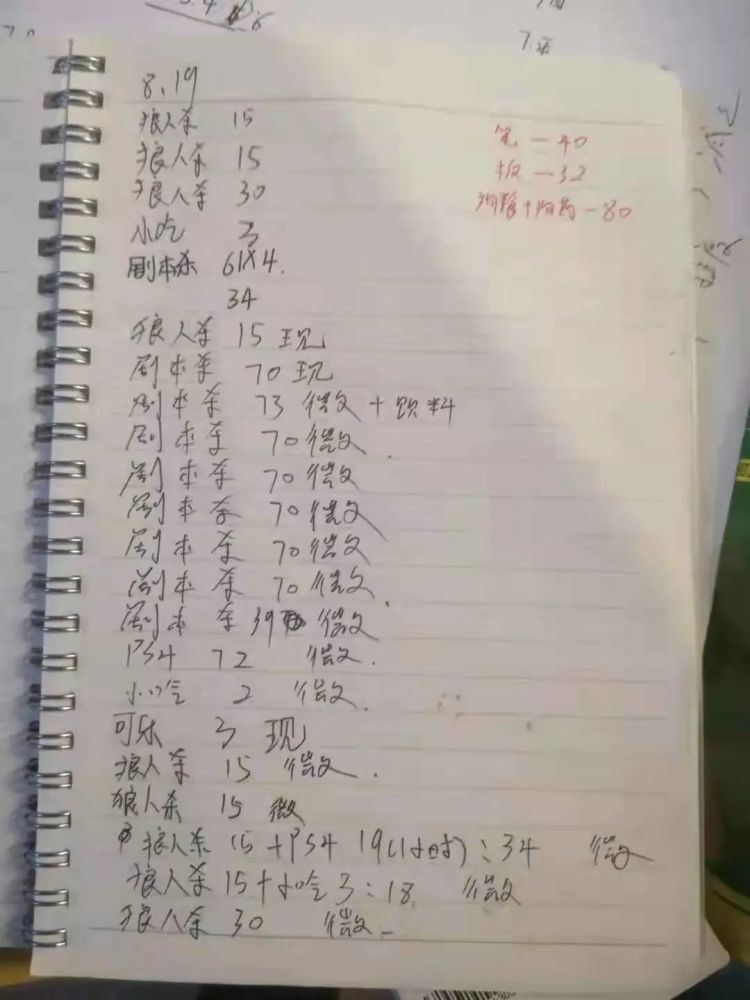 8.19
狼人杀 15
狼人杀 15
狼人杀 30
小吃 3
剧本杀 61X4.
34
狼人杀 15 现
剧本杀 70 现
剧本杀 73 微 + 饮料
剧本杀 70 微
剧本杀 70 微
剧本杀 70 微
剧本杀 70 微
剧本杀 70 微
剧本杀 39 微
PS4 72 微
小吃 2 微
可乐 3 现
狼人杀 15 微
狼人杀 15 微
狼人杀 15 + PS4 19(1小时) : 34 微
狼人杀 15 + 小吃 3 : 18 微
狼人杀 30 微
笔 — 40
板 — 32
狗粮 + 狗药 — 80